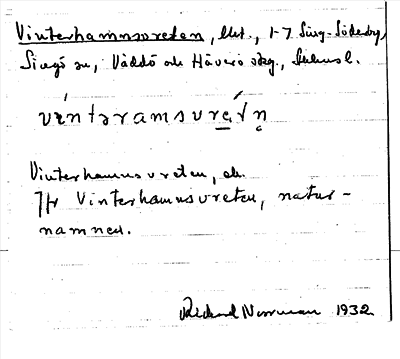 Vinterhamnsvreten, lht., 1-7 Sing-Söderby,
Singö sn, Väddö och Häverö skg., Sthms l.
vìntəramsvre̲tn̥
Vinterhamnsvreten, åk.
Jfr Vinterhamnsvreten, natur-
namnen.
Rickard Norrman 1932